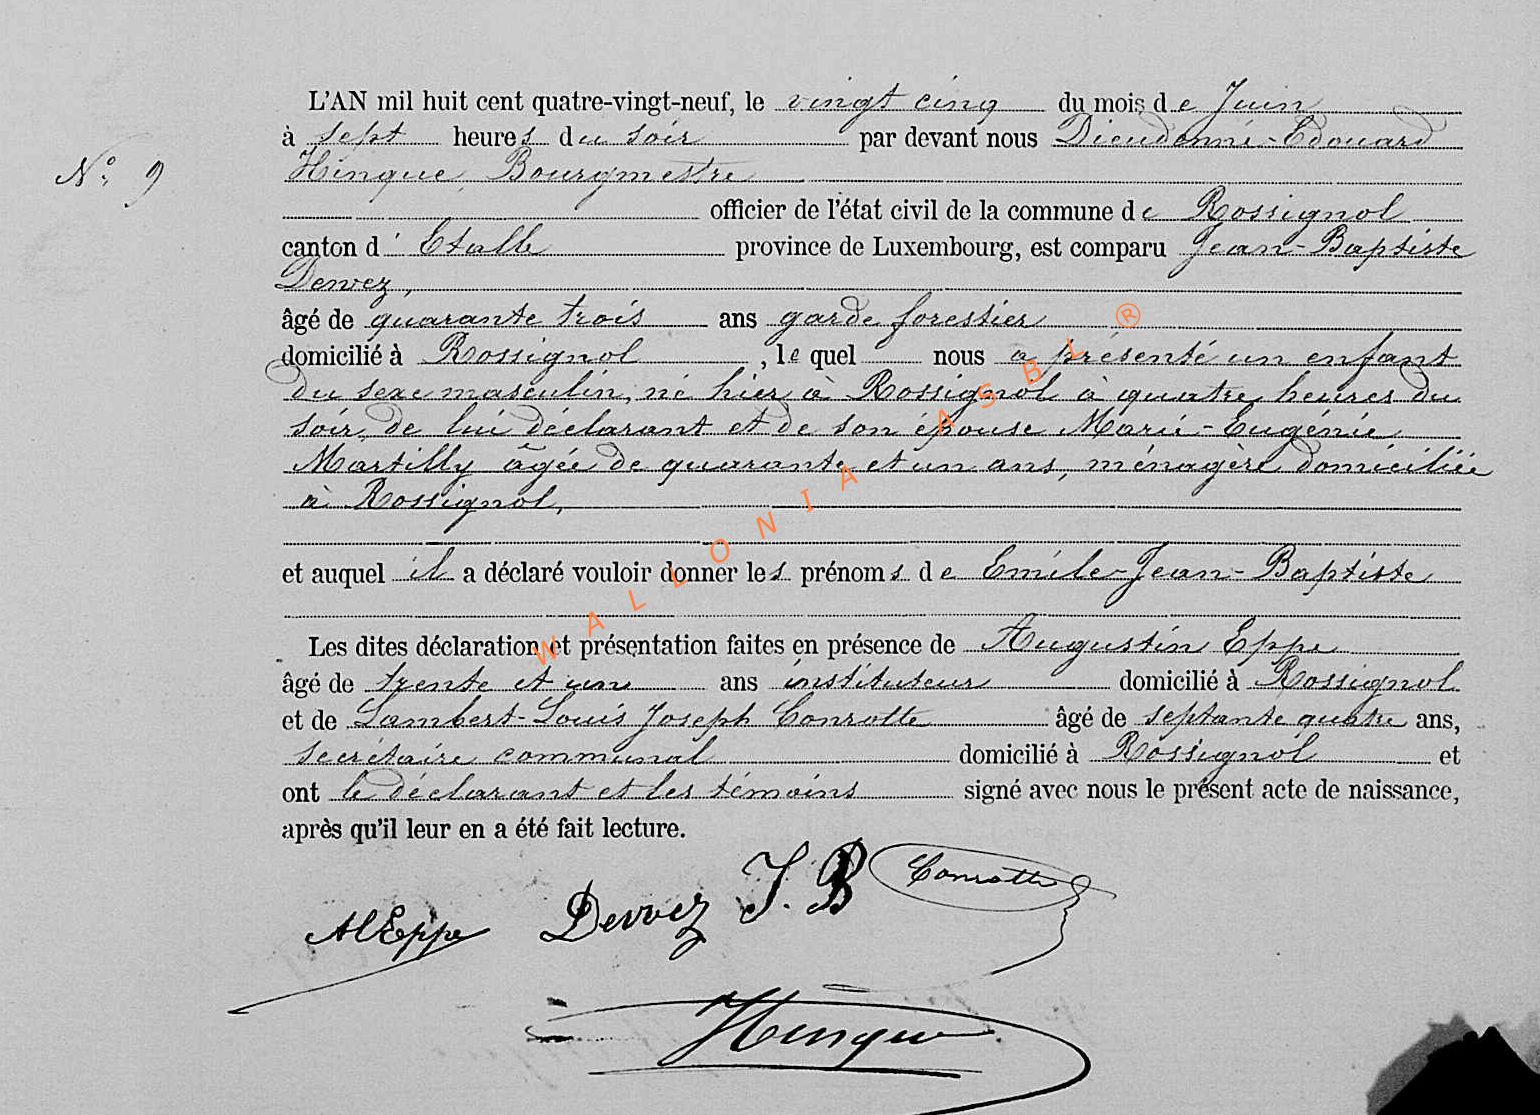 L'AN mil huit cent quatre-vingt-neuf, le vingt cinq du mois de Juin
à sept heures du soir par devant nous Dieudonné-Edouard
N° 9
Hinque, Bourgmestre
officier de l'état civil de la commune de Rossignol
canton d'Etalle province de Luxembourg, est comparu Jean-Baptiste
Dervez,
âgé de quarante trois ans garde forestier
domicilié à Rossignol, le quel nous a présenté un enfant
du sexe masculin, né hier à Rossignol à quatre heures du
soir, de lui déclarant et de son épouse Marie-Eugénie
Martilly âgée de quarante et un ans, ménagère domiciliée
à Rossignol,
et auquel il a déclaré vouloir donner les prénoms de Emile-Jean-Baptiste
Les dites déclaration et présentation faites en présence de Augustin Eppe
âgé de trente et un ans instituteur domicilié à Rossignol
et de Lambert-Louis Joseph Conrotte âgé de septante quatre ans,
secrétaire communal domicilié à Rossignol et
ont le déclarant et les témoins signé avec nous le présent acte de naissance,
après qu'il leur en a été fait lecture.
Conrotte
AEppe Dervez J. B
Hinque
WALLONIA ASBL ®